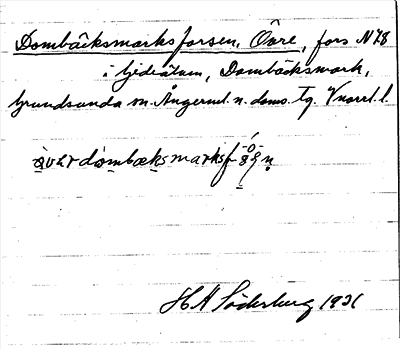 Dombäcksmarksforsen, Övre, fors N78
i Gideälven, Dombäcksmark,
Grundsunda sn. Ångerml. n. doms. tg. Vnorrl. l.
överdombæksmarksf
H A Söderberg 1931